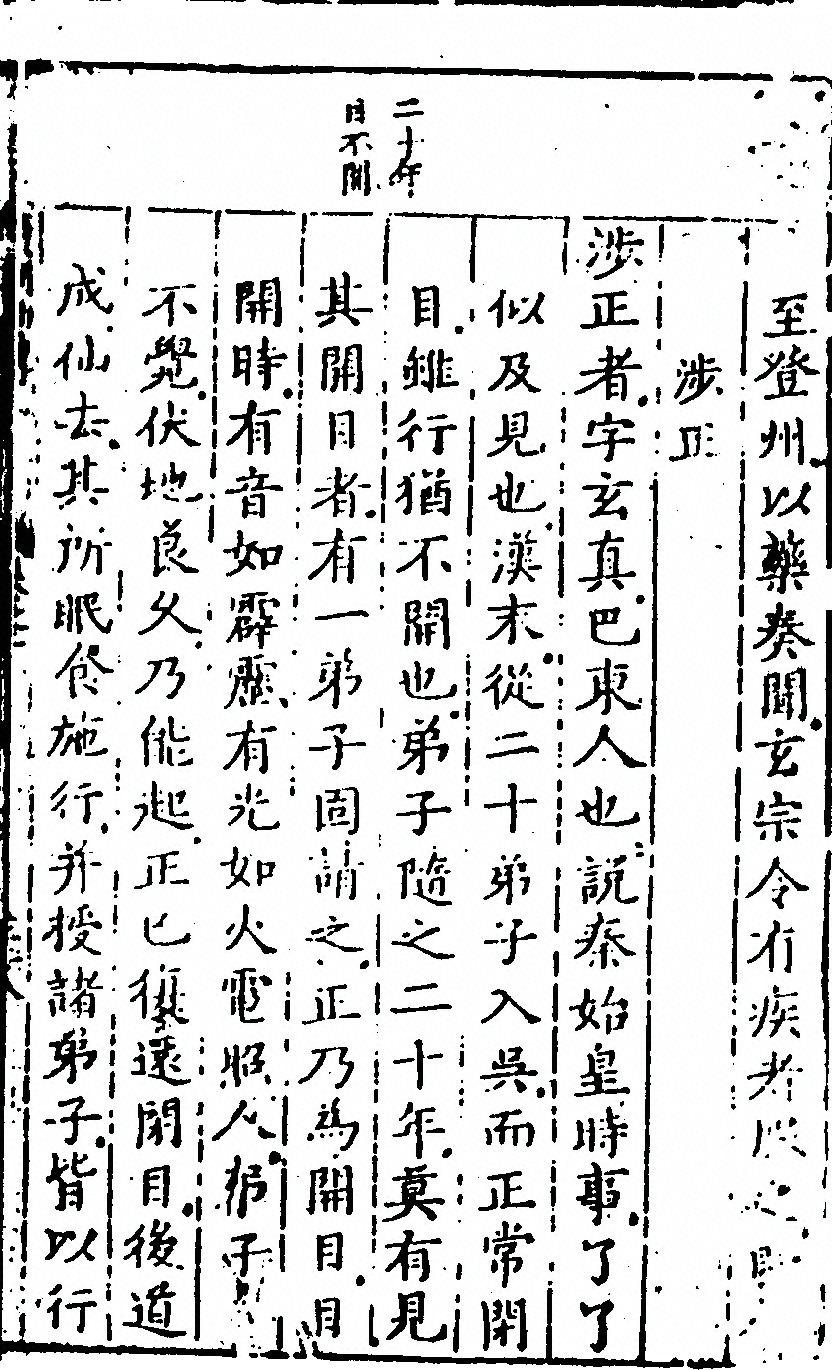 二十年
目不開
至登州以藥奏聞玄宗令有疾者
涉正
涉正者字玄真巴東人也説秦始皇時事了了
似及見也漢末從二十弟子入吳而正常閉
目雖行猶不開也弟子隨之二十年莫有見
其開目者有一弟子固請之正乃為開目目
開時有音如霹靂有光如火電照人弟子
不覺伏地良久乃能起正已復還閉目後道
成仙去其所眠食施行并授諸弟子皆以行